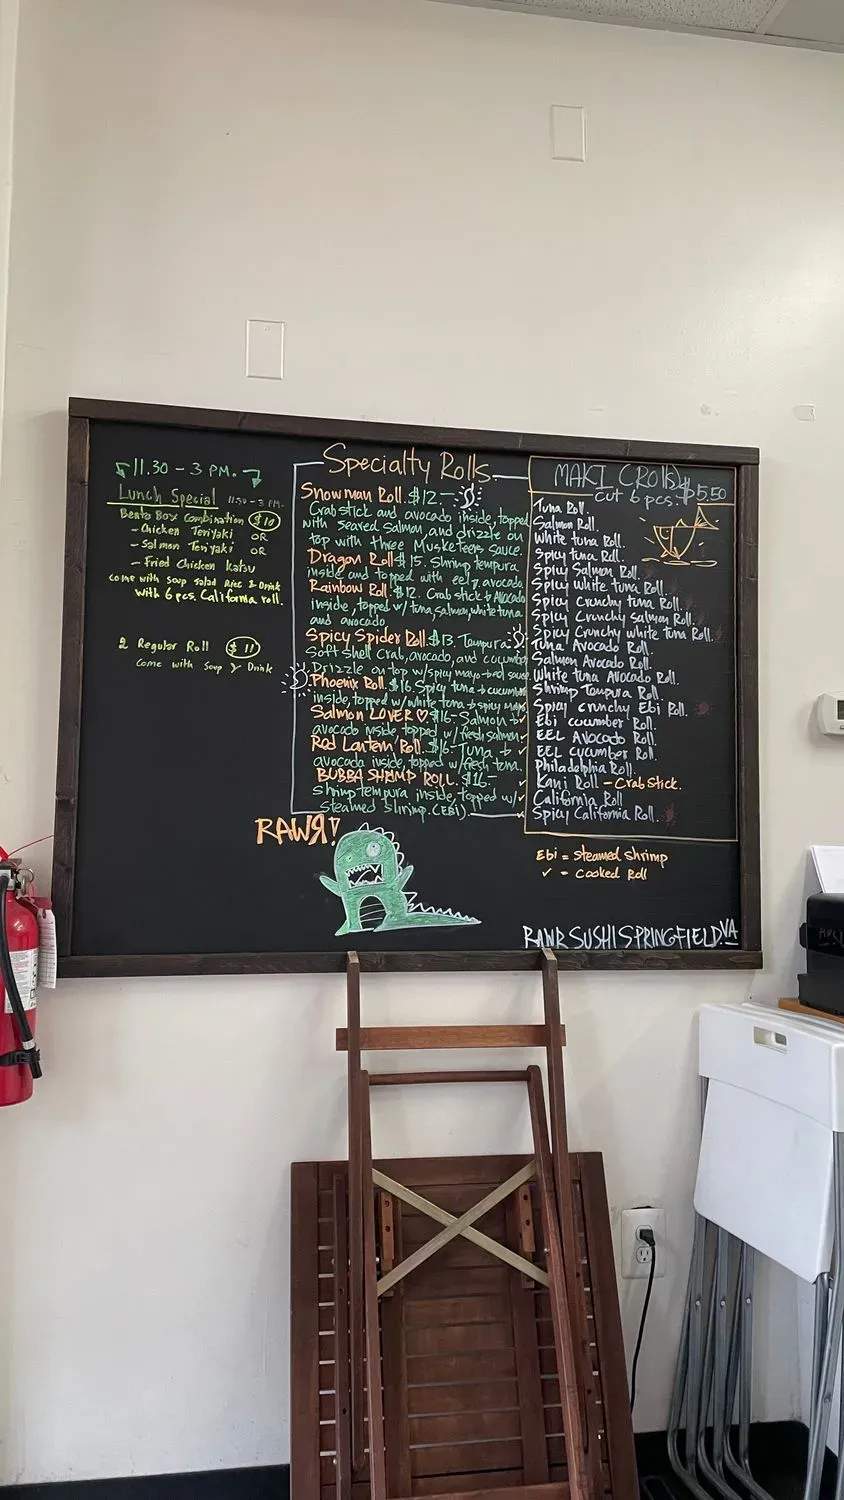 11.30 - 3 PM.
Lunch Special 11.30 - 3 PM.
Bento Box Combination $10
- Chicken Teriyaki OR
- Salmon Teriyaki OR
- Fried Chicken katsu
come with soup salad Rice & Drink
with 6 pcs. California roll.
2 Regular Roll $11
come with Soup & Drink
Specialty Rolls
Snowman Roll. $12 -
Crabstick and avocado inside, topped
with seared Salmon, and drizzle on
top with three Musketeers Sauce.
Dragon Roll $15. Shrimp tempura
inside and topped with eel & avocado
Rainbow Roll. $12. Crab stick & Avocado
inside, topped w/ tuna, salmon, white tuna
and avocado
Spicy Spider Roll. $13 Tempura
Soft shell crab, avocado, and cucumber
Drizzle on top w/ spicy mayo - based sauce
Phoenix Roll. $16. Spicy tuna & cucumber
inside, topped w/ white tuna & spicy mayo
Salmon LOVER ♡ $16 - Salmon &
avocado inside, topped w/ fresh salmon
Red Lantern Roll. $16 - Tuna &
avocado inside, topped w/ fresh tuna.
BUBBA SHRIMP ROLL. $16. -
shrimp tempura inside, topped w/
steamed shrimp. (EBI).
RAWЯ!
MAKI (Rolls)
cut 6 pcs. $5.50
Tuna Roll.
Salmon Roll.
White tuna Roll.
Spicy tuna Roll.
Spicy Salmon Roll.
Spicy white tuna Roll.
Spicy Crunchy tuna Roll.
Spicy Crunchy salmon Roll.
Spicy Crunchy white tuna Roll.
Tuna Avocado Roll.
Salmon Avocado Roll.
White tuna Avocado Roll.
Shrimp Tempura Roll.
Spicy crunchy Ebi Roll.
✓ Ebi cucumber Roll.
✓ EEL Avocado Roll.
✓ EEL cucumber Roll.
Philadelphia Roll.
Kani Roll - Crab stick.
✓ California Roll
✓ Spicy California Roll.
Ebi = steamed shrimp
✓ = Cooked Roll
RAWR SUSHI SPRINGFIELD. VA